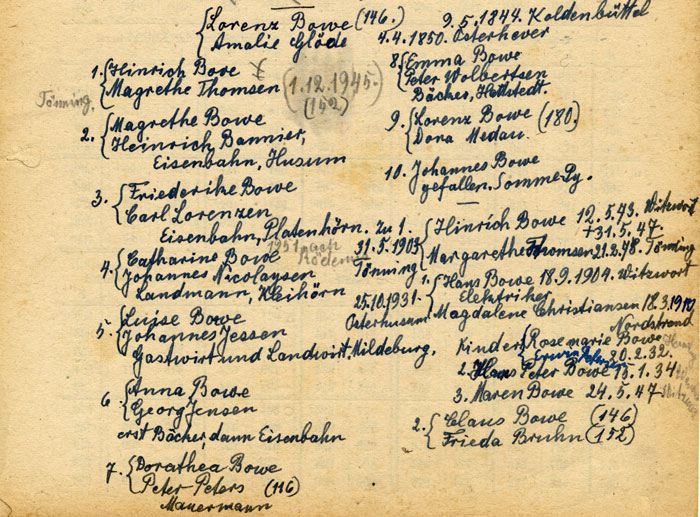 Lorenz Bowe (146.) 9.5.1844. Koldenbüttel
Amalie Glöde 4.4.1850. Osterhever
1. Hinrich Bowe
Magrethe Thomsen (1.12.1945.)
Tönning, (152)
2. Magrethe Bowe
Heinrich Bannier,
Eisenbahn, Husum
3. Friederike Bowe
Carl Lorenzen
Eisenbahn, Platenhörn.
4. Catharine Bowe
Johannes Nicolaysen
Landmann, Kleihörn
5. Luise Bowe
Johannes Jessen
Gastwirt und Landwirt, Mildeburg.
6. Anna Bowe
Georg Jensen
erst Bäcker, dann Eisenbahn
7. Dorathea Bowe
Peter Peters (116)
Mauermann
8. Emma Bowe
Peter Wolbertsen
Bäcker, Hettstedt.
9. Lorenz Bowe (180.)
Dora Medau.
10. Johannes Bowe
gefallen. Somme-Py.
zu 1. Hinrich Bowe 12.5.73. Witzwort
+31.5.47.
31.5.1903 Margarethe Thomsen 21.2.78. Tönning
Tönning
1951 nach
1. Hans Bowe 18.9.1904. Witzwort
Elektriker
25.10.1931 Magdalene Christiansen 18.3.1912
Osterhusum Nordstrand
Kinder Rosemarie Bowe
20.2.32.
2. Hans Peter Bowe 15.1.34
3. Maren Bowe 24.5.47
2. Claus Bowe (146)
Frieda Bruhn (152)